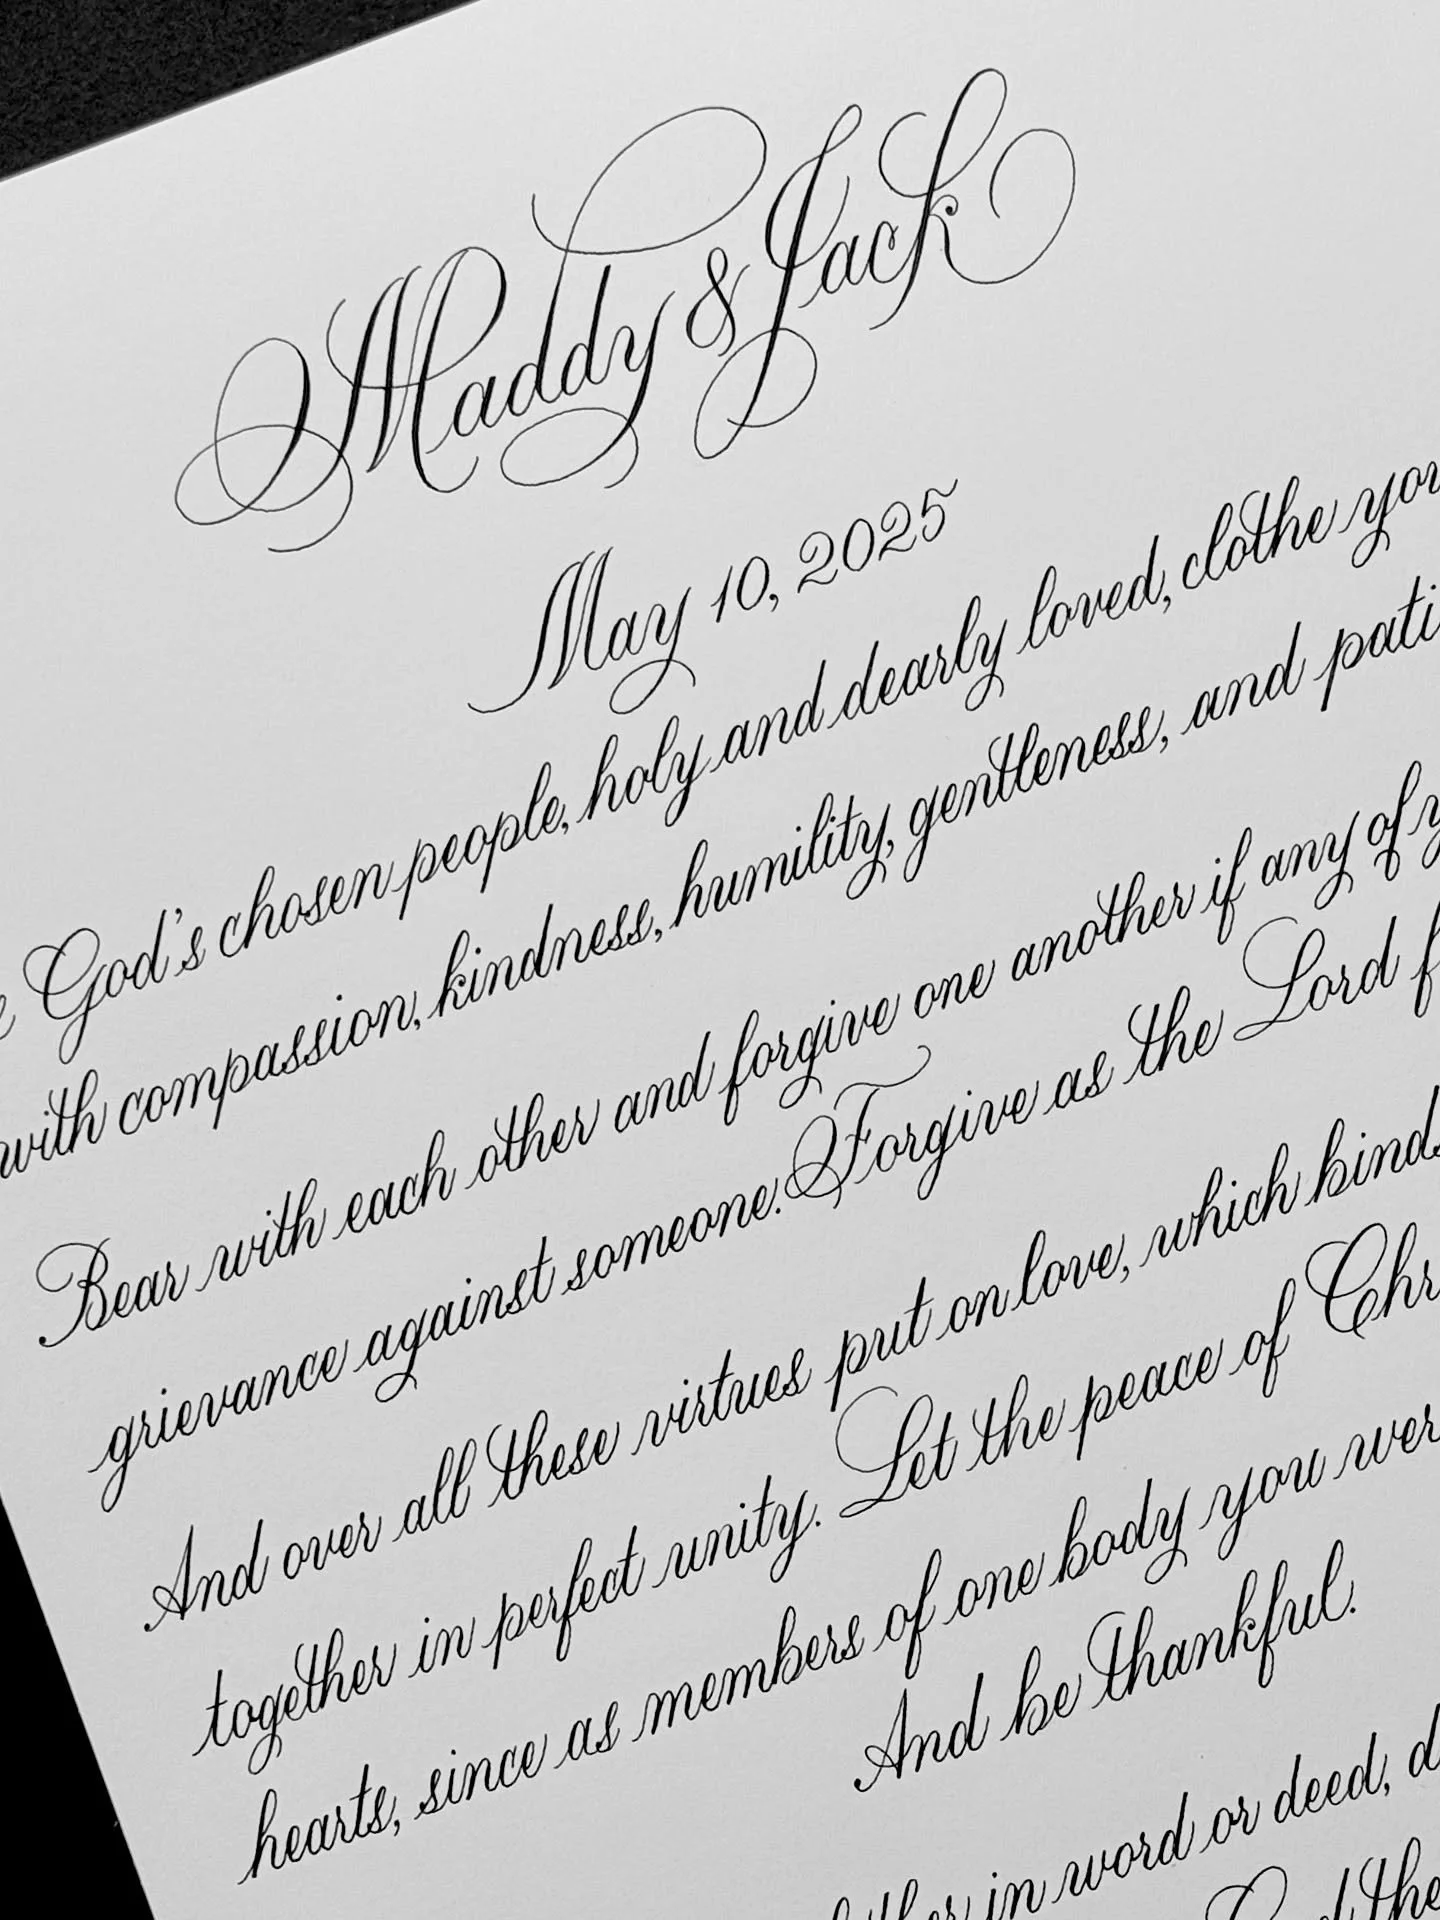 Maddy & Jack
May 10, 2025
God's chosen people, holy and dearly loved, clothe
with compassion, kindness, humility, gentleness, and
Bear with each other and forgive one another if any of
grievance against someone. Forgive as the Lord
And over all these virtues put on love, which binds
together in perfect unity. Let the peace of
hearts, since as members of one body you
And be thankful.
in word or deed,